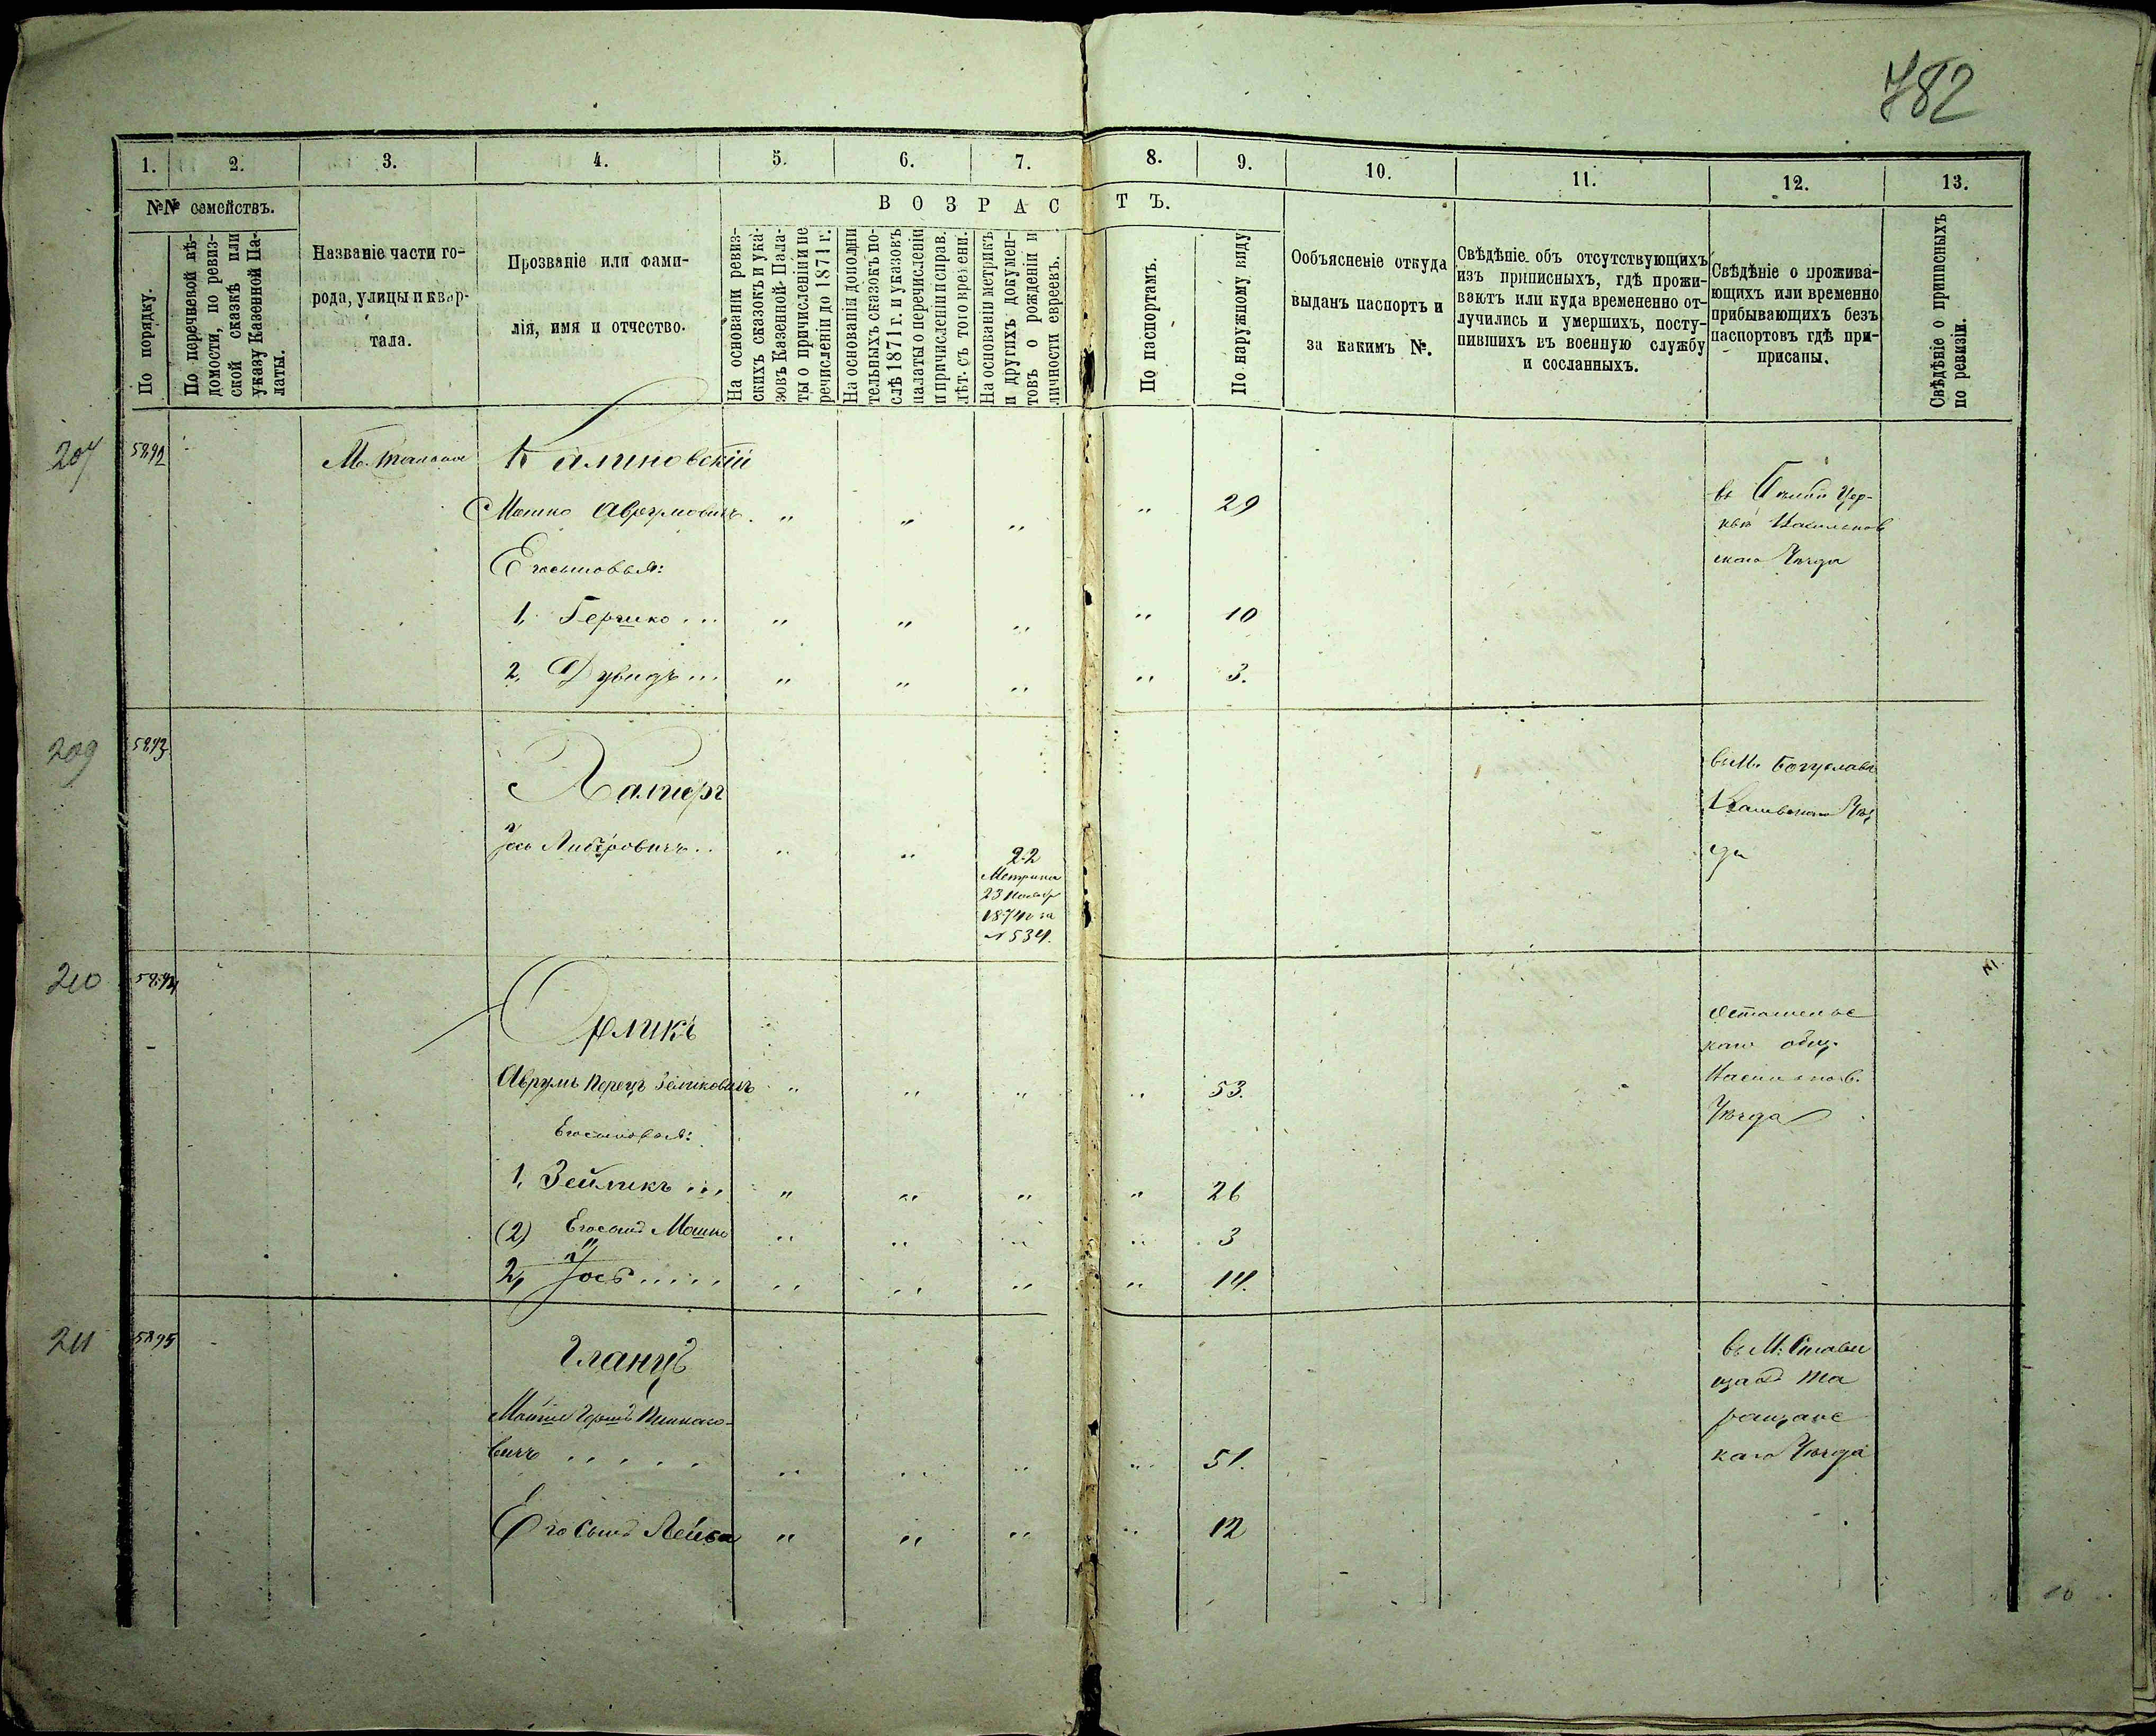 782
1. 2. 3. 4. 5. 6. 7. 8. 9. 10. 11. 12. 13.
№№ семействъ.
По порядку.
По перечневой вѣ-
домости, по ревиз-
ской сказкѣ или
указу Казенной Па-
латы.
Названіе части го-
рода, улицы и квар-
тала.
Прозваніе или фами-
лія, имя и отчество.
ВОЗРАСТЪ.
На основаніи ревиз-
скихъ сказокъ и ука-
зовъ Казенной Пала-
ты о причисленіи и пе
речисленіи до 1871 г.
На основаніи дополни
тельныхъ сказокъ по-
слѣ 1871 г. и указовъ
палаты о перечисленіи
и причисленіи и справ.
лѣт. съ того времени.
На основаніи метрикъ
и другихъ докумен-
товъ о рожденіи и
личности евреевъ.
По паспортамъ.
По наружному виду
Ообъясненіе откуда
выданъ паспортъ и
за какимъ №.
Свѣдѣніе объ отсутствующихъ
изъ приписныхъ, гдѣ прожи-
ваютъ или куда временно от-
лучились и умершихъ, посту-
пившихъ въ военную службу
и сосланныхъ.
Свѣдѣніе о прожива-
ющихъ или временно
прибывающихъ безъ
паспортовъ гдѣ при-
писаны.
Свѣдѣніе о приписныхъ
по ревизіи.
207 5892 М. Калиновскій
Мошко Аврумовичъ . " " " " 29 въ Бѣлой Цер-
кви Васильков
скаго Уѣзда
Его сыновья:
1, Гершко ... " " " " 10
2, Дувидъ ... " " " " 3.
209 5893 Халперъ въ М. Богуславѣ
Каневскаго Уѣз
да
Іось .. " " 22
Метрика
23 Ноября
1874 за
№ 534.
210 5894 Орликъ
Аврумъ Перецъ Зеликовичъ " " " " 53.
каго общ.
Васильков.
Уѣзда
Его сыновья:
1, Зейликъ ... " " " " 26
(2) Его сынъ Мошко " " " " 3
2, Іось ..... " " " " 14.
211 5895 Гланцъ въ М. Стави
щахъ Та
ращанс
каго Уѣзда
Гершъ
вичъ ..... " " " " 51.
Его Сынъ Лейба " " " " 12